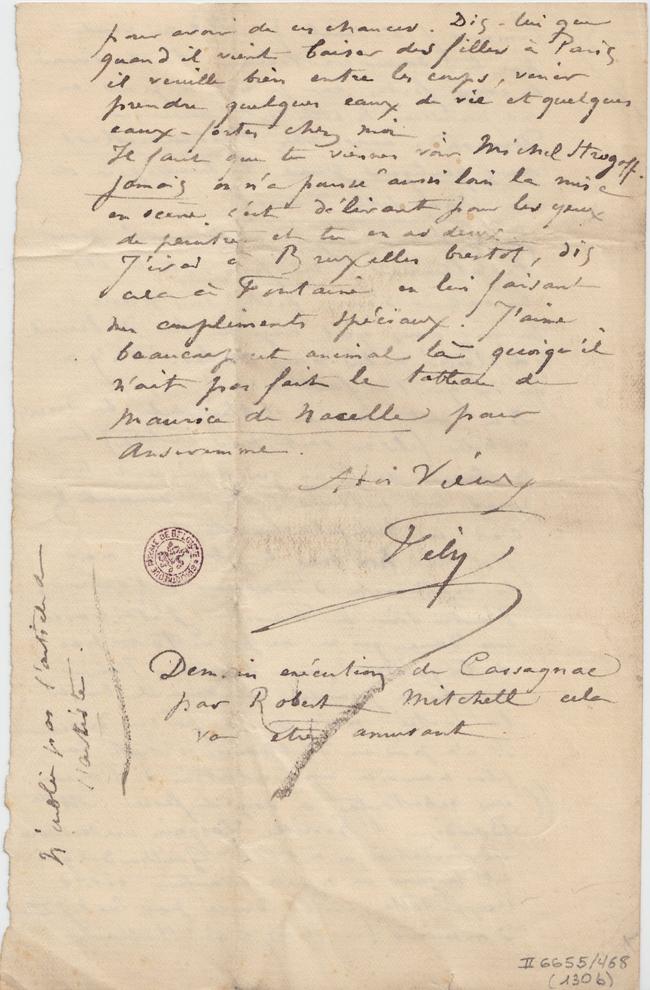 pour avoir de ces chances. Dis-lui que
quand il vient baiser des filles à Paris
il veuille bien entre les coups, venir
prendre quelques eaux de vie et quelques
eaux-fortes chez moi.
Il faut que tu viennes voir Michel Strogoff.
Jamais on n'a poussé aussi loin la mise
en scène c'est délirant pour les yeux
de peintre et tu en as deux.
J'irai à Bruxelles bientot, dis
cela à Fontaine en lui faisant
mes compliments spéciaux. J'aime
beaucoup cet animal là quoiqu'il
n'ait pas fait le tableau de
Maurice de Nacelle pour
Anseremme.
A toi Vieux
Fély
Demain exécution de Cassagnac
par Robert Mitchell cela
va être amusant.
N'oublie pas l'article de
l'artiste.
BIBLIOTHEQUE ROYALE DE BELGIQUE
II 6655/468
(130b)